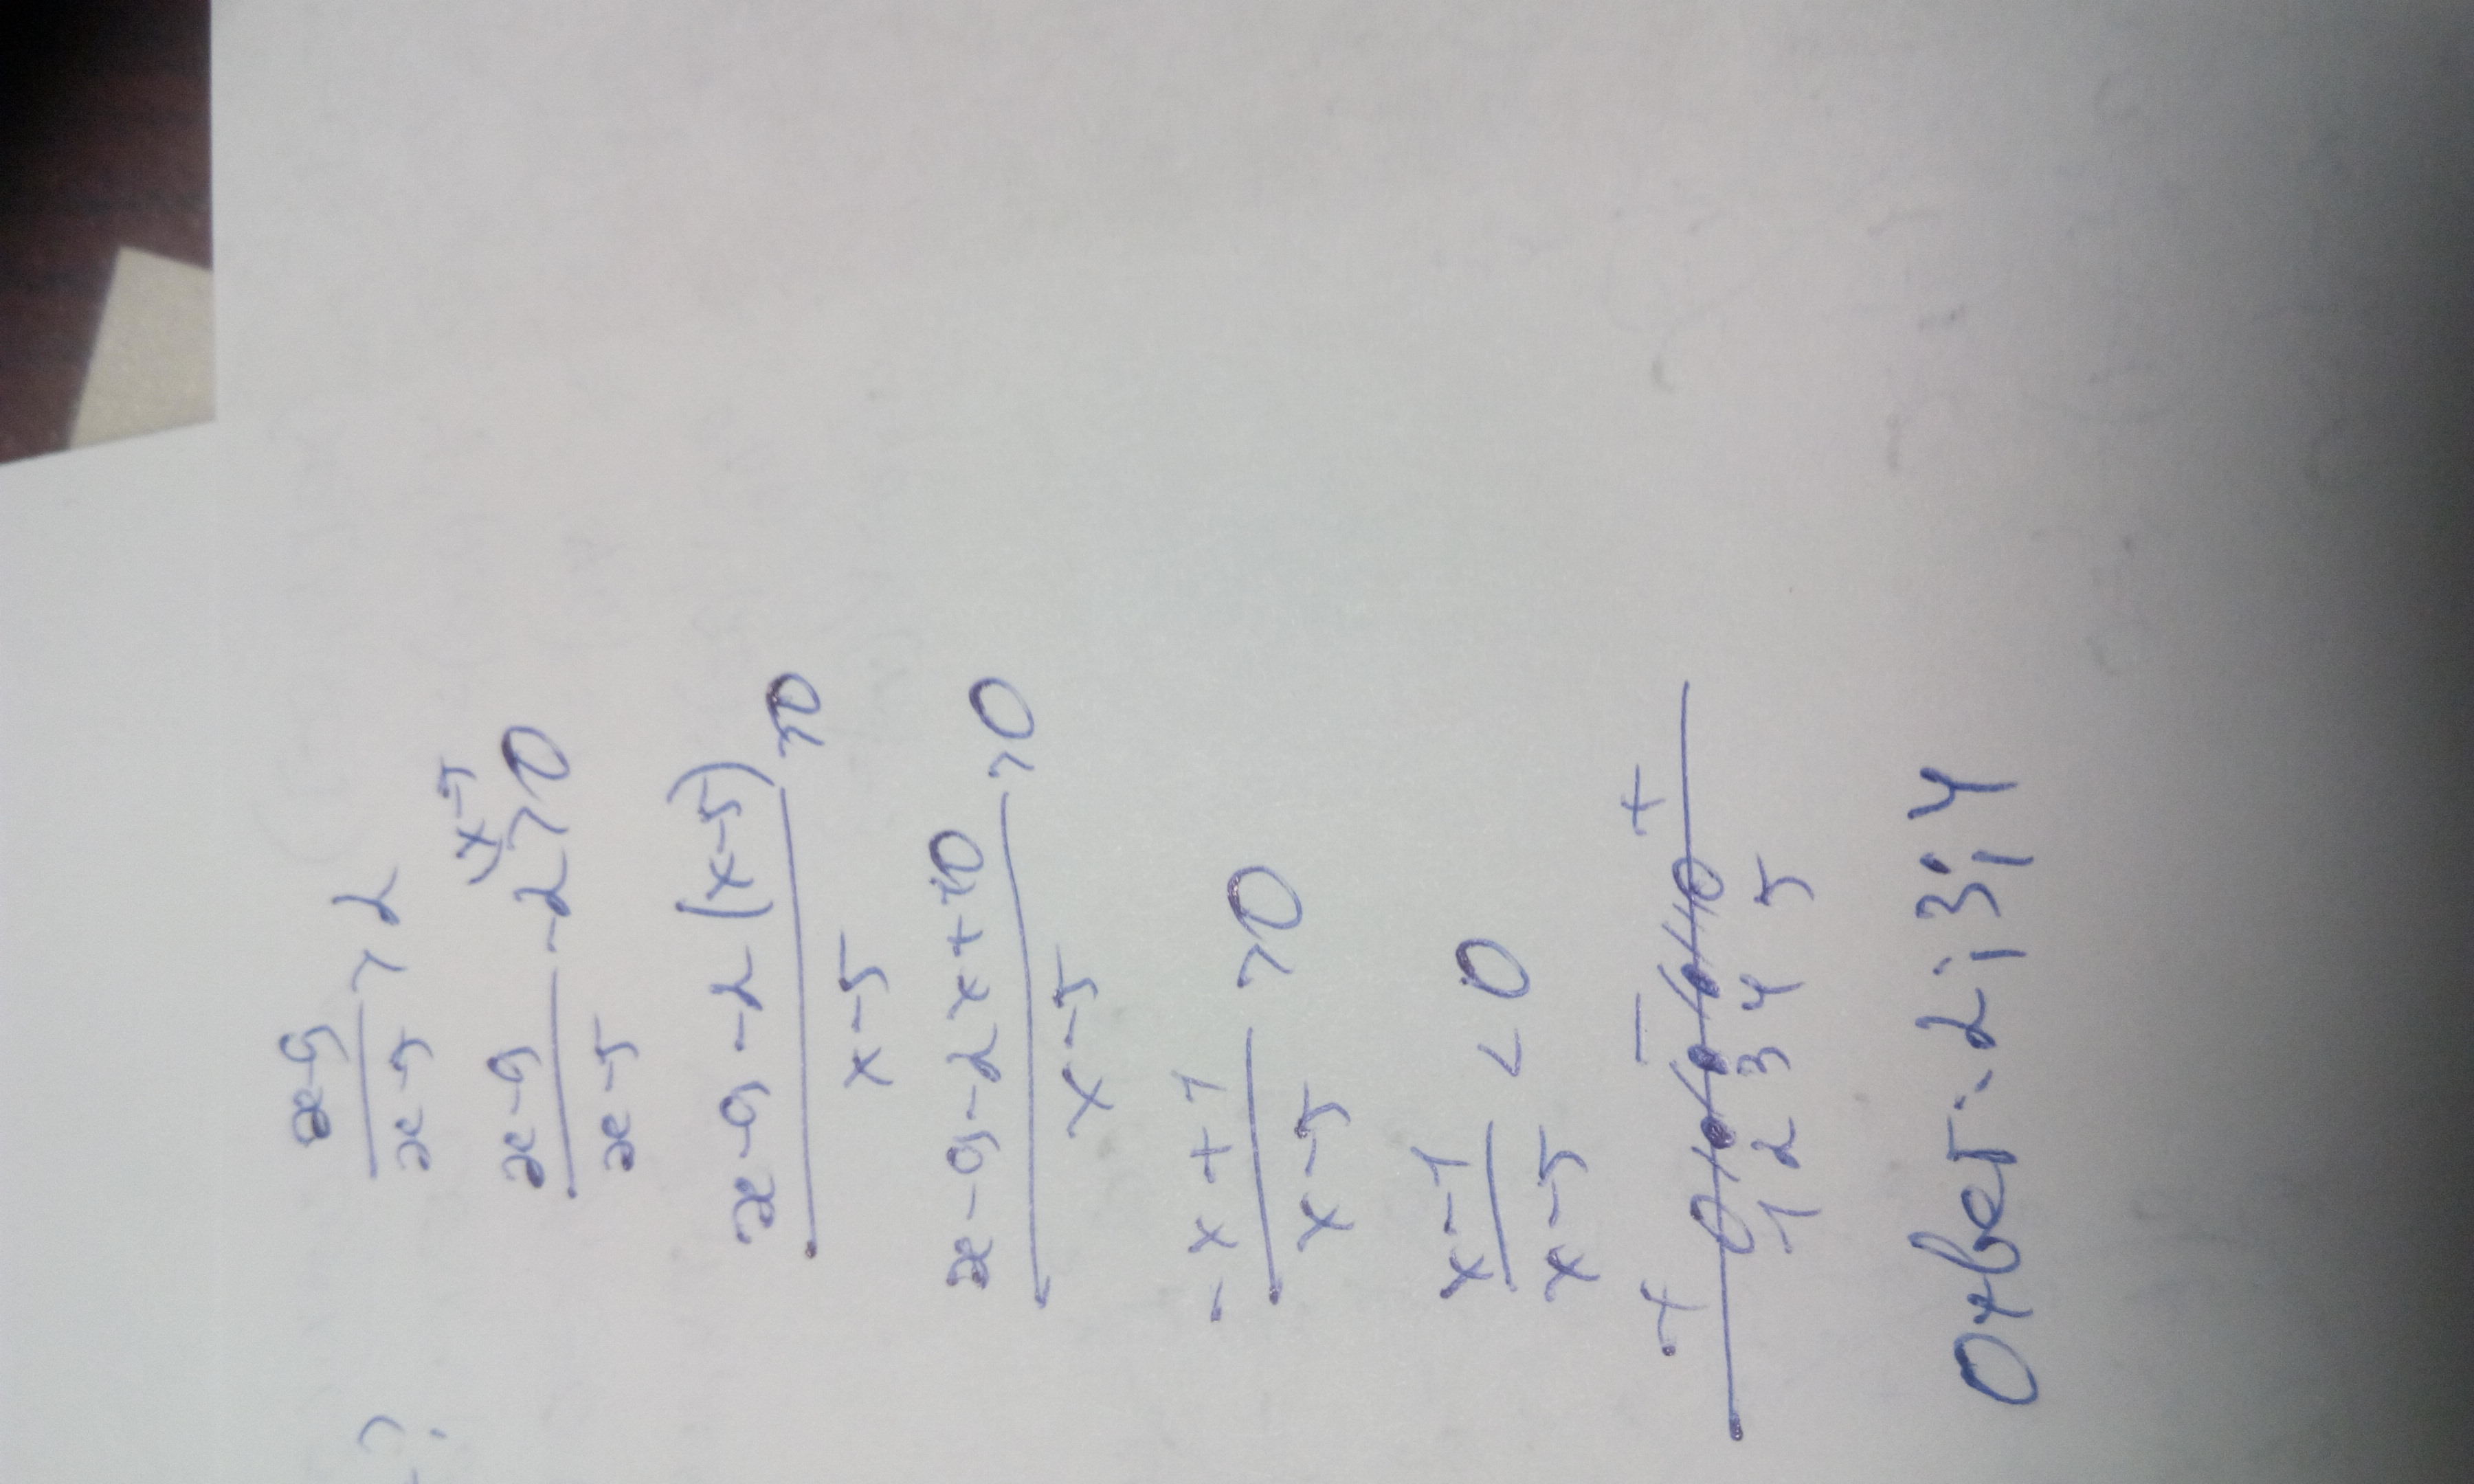 x-9/x-5 > 2
x-9/x-5 - 2\x-5 > 0
x-9-2(x-5)/x-5 > 0
x-9-2x+10/x-5 > 0
-x+1/x-5 > 0
x-1/x-5 < 0
+ - +
1 2 3 4 5
Ответ: 2; 3; 4